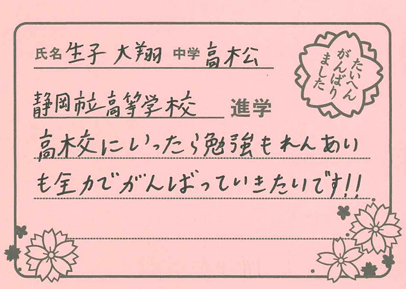 氏名 生子 大翔 中学 高松公
静岡市立高等学校 進学
高校にいったら勉強もれんあい
も全力でがんばっていきたいです!!
たいへん
がんばり
ました